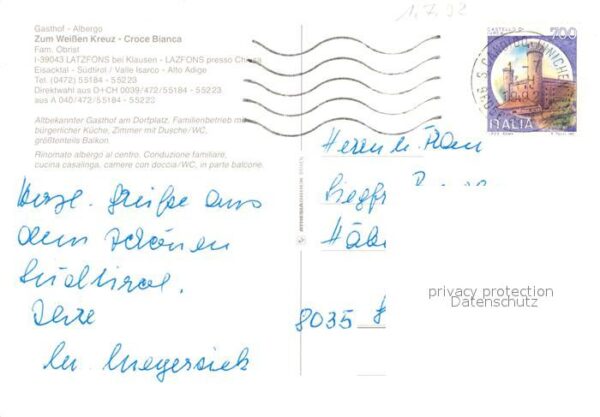 1.7.92
Gasthof - Albergo
Zum Weißen Kreuz - Croce Bianca
Fam. Obrist
I-39043 LATZFONS bei Klausen - LAZFONS presso Chiusa
Eisacktal - Südtirol / Valle Isarco - Alto Adige
Tel. (0472) 55184 - 55223
Direktwahl aus D+CH 0039/472/55184 - 55223
aus A 040/472/55184 - 55223
Altbekannter Gasthof am Dorfplatz. Familienbetrieb mit
bürgerlicher Küche, Zimmer mit Dusche/WC,
größtenteils Balkon.
Rinomato albergo al centro. Conduzione familiare,
cucina casalinga, camere con doccia/WC, in parte balcone.
700
ITALIA
Herzl. Grüße aus
dem schönen
Südtirol.
Herrn u. Frau
8035
privacy protection
Datenschutz